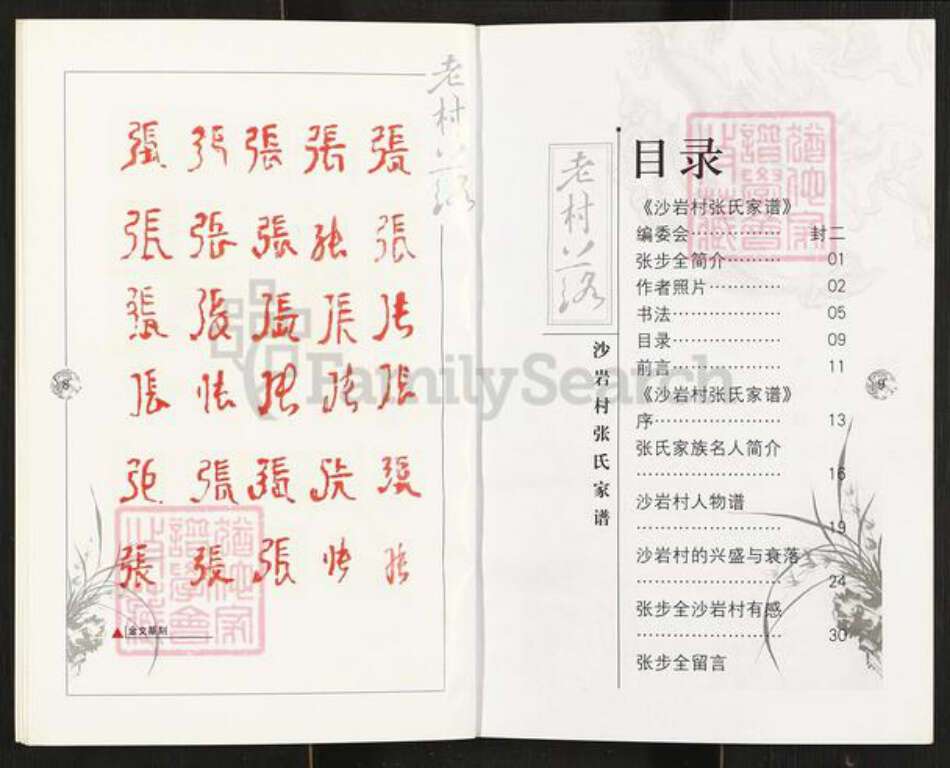 張 張 張 張 張
張 張 張 張 張
張 張 張 張 張
張 張 張 張 張
張 張 張 張 張
張 張 張 張 張
金文篆刻
8
老村落
FamilySearch
老村落
沙岩村张氏家谱
目录
《沙岩村张氏家谱》
编委会……………封二
张步全简介………01
作者照片…………02
书法………………05
目录………………09
前言………………11
《沙岩村张氏家谱》
序…………………13
张氏家族名人简介
……………………16
沙岩村人物谱
……………………19
沙岩村的兴盛与衰落
……………………24
张步全沙岩村有感
……………………30
张步全留言
9